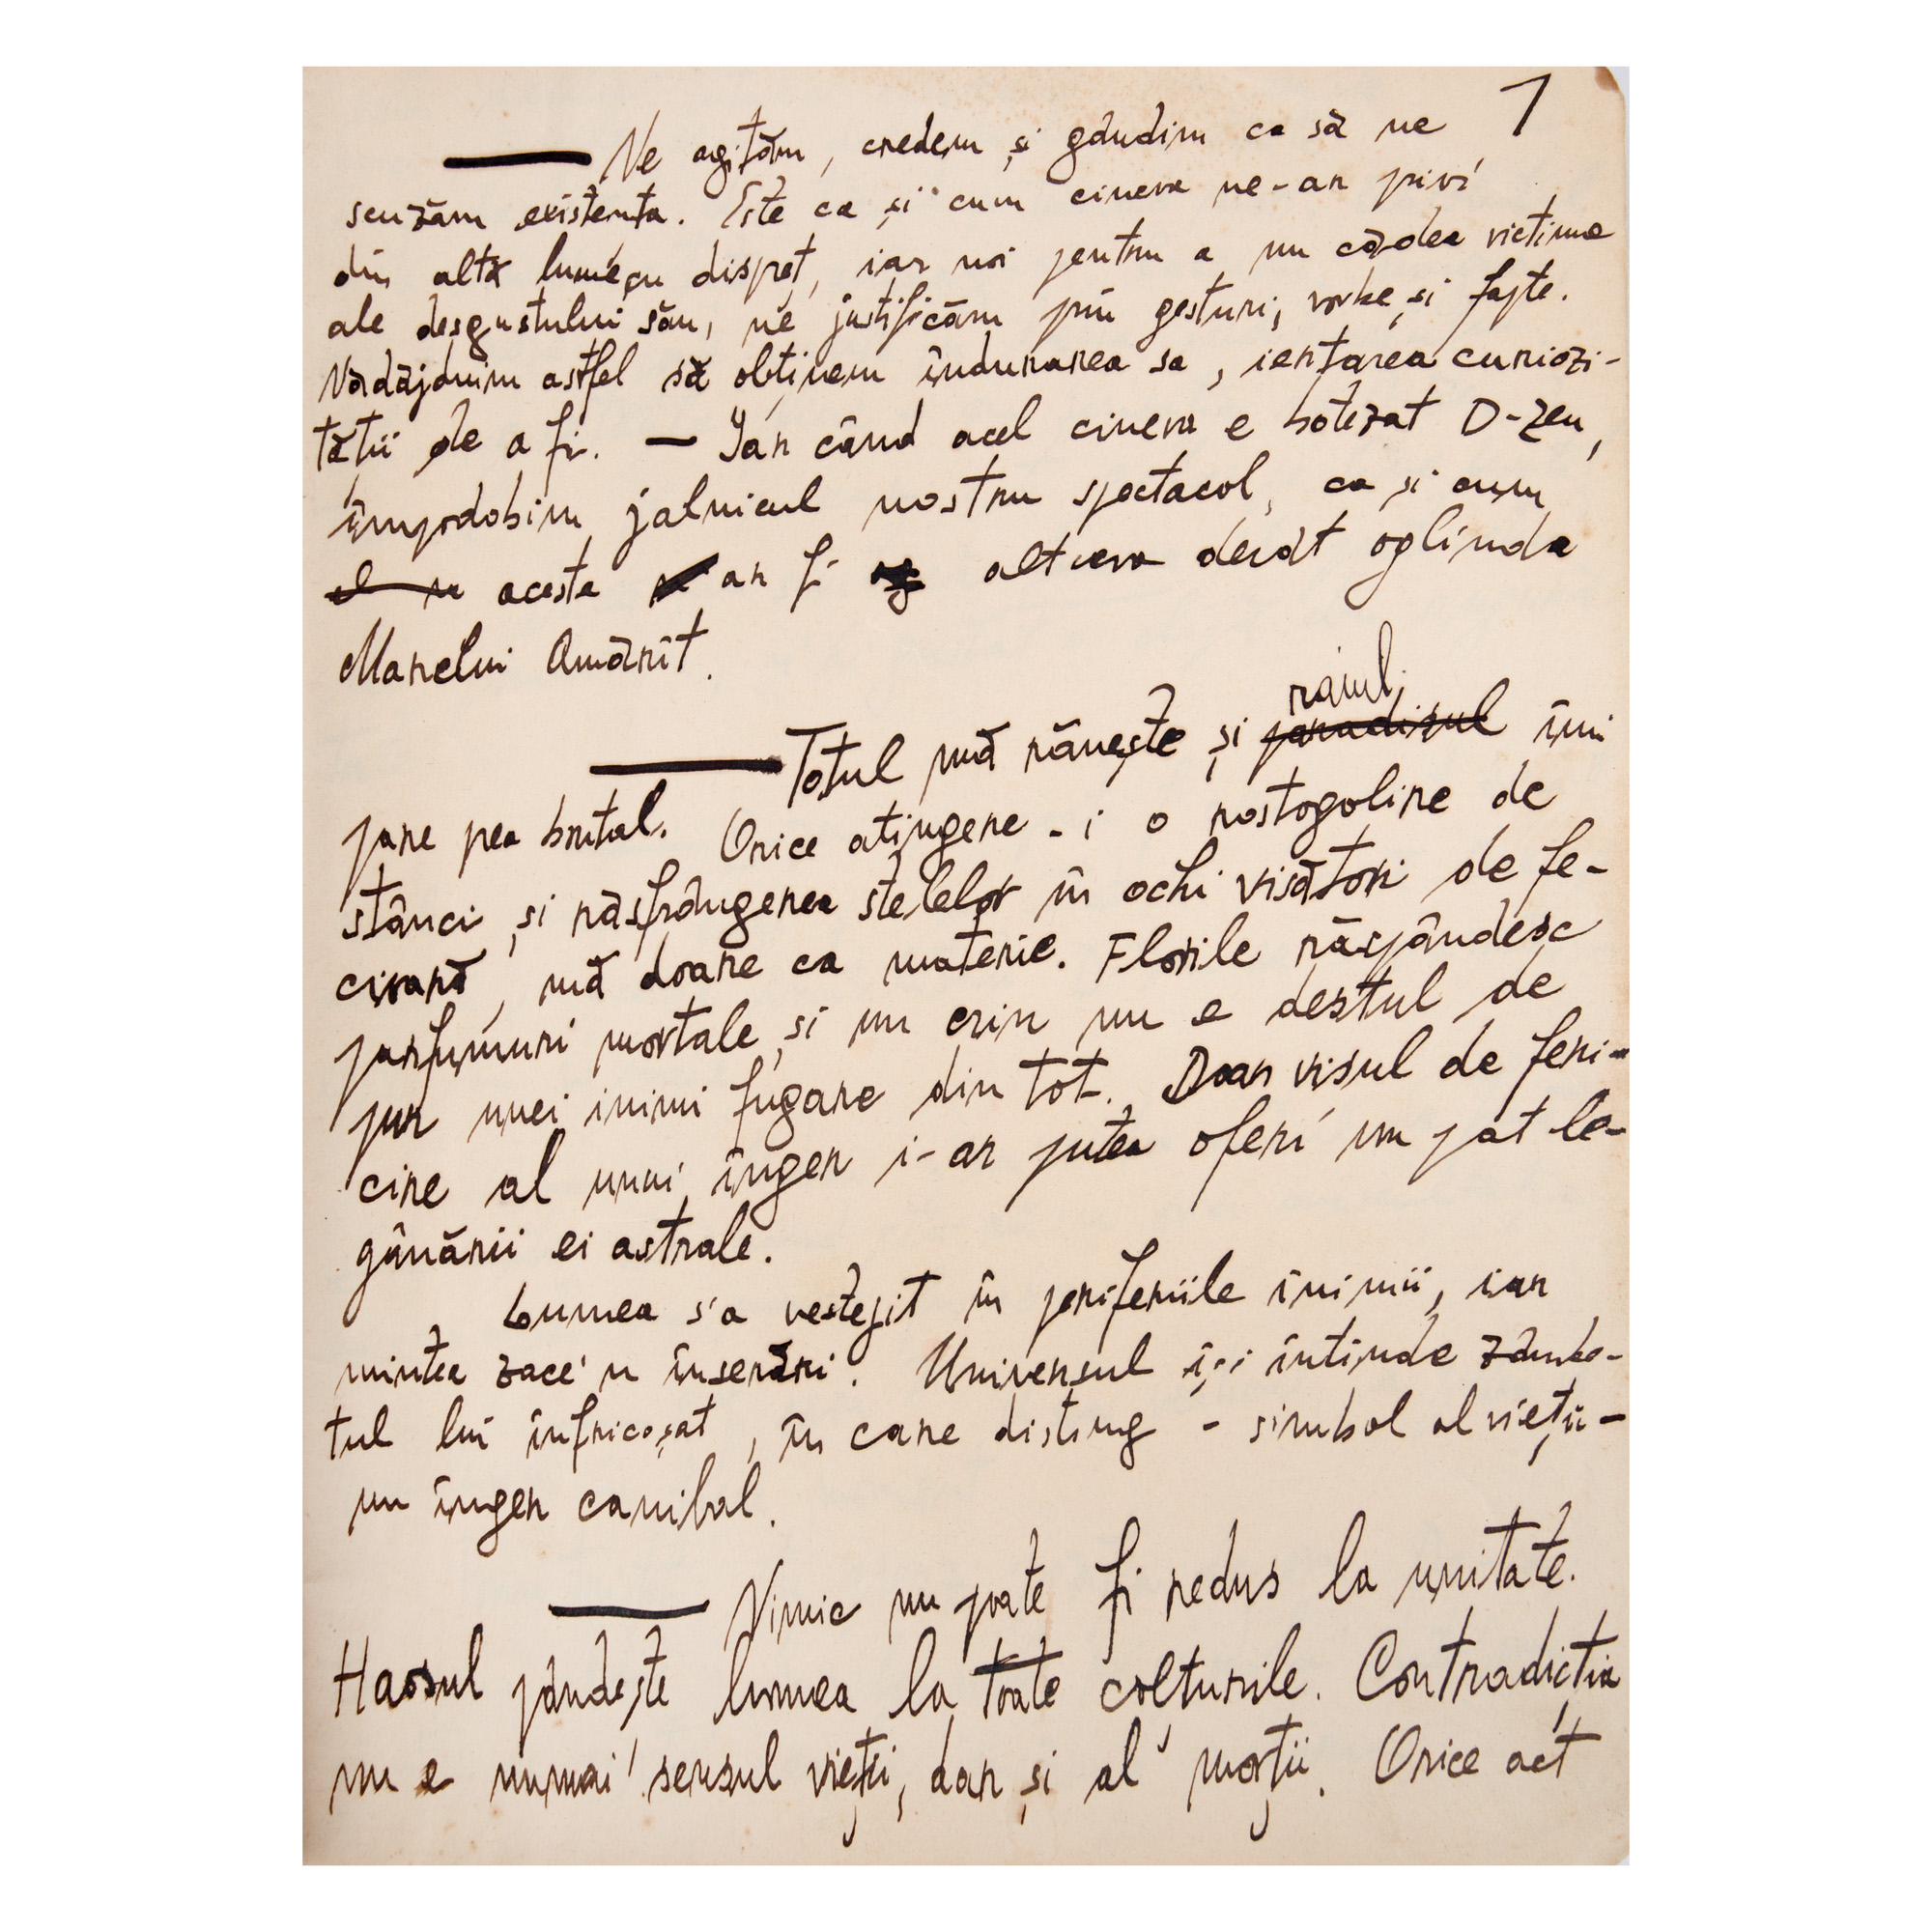 1
— Ne agităm, credem și gândim ca să ne
scuzăm existența. Este ca și cum cineva ne-ar privi
din altă lume cu dispreț, iar noi pentru a nu cădea victime
ale desgustului său, ne justificăm prin gesturi, vorbe și fapte.
Nădăjduim astfel să obținem îndurarea sa, iertarea curiozi-
tății de a fi. — Iar când acel cineva e botezat D-zeu,
împodobim jalnicul nostru spectacol, ca și cum
acesta ar fi altceva decât oglinda
Marelui Amărît.
raiul
— Totul mă rănește și paradisul îmi
pare prea brutal. Orice atingere-i o rostogolire de
stânci și răsfrângerea stelelor în ochi visători de fe-
cioară, mă doare ca materie. Florile răspândesc
parfumuri mortale și un crin nu e destul de
pur unei inimi fugare din tot. Doar visul de feri-
cire al unui înger i-ar putea oferi un pat le-
gănării ei astrale.
Lumea s'a veștejit în periferiile inimii, iar
mintea zace'n înserări. Universul își întinde zâmbe-
tul lui înfricoșat, în care disting - simbol al vieții -
un înger canibal.
— Nimic nu poate fi redus la unitate.
Haosul pândește lumea la toate colțurile. Contradicția
nu e numai sensul vieții, dar și al morții. Orice act